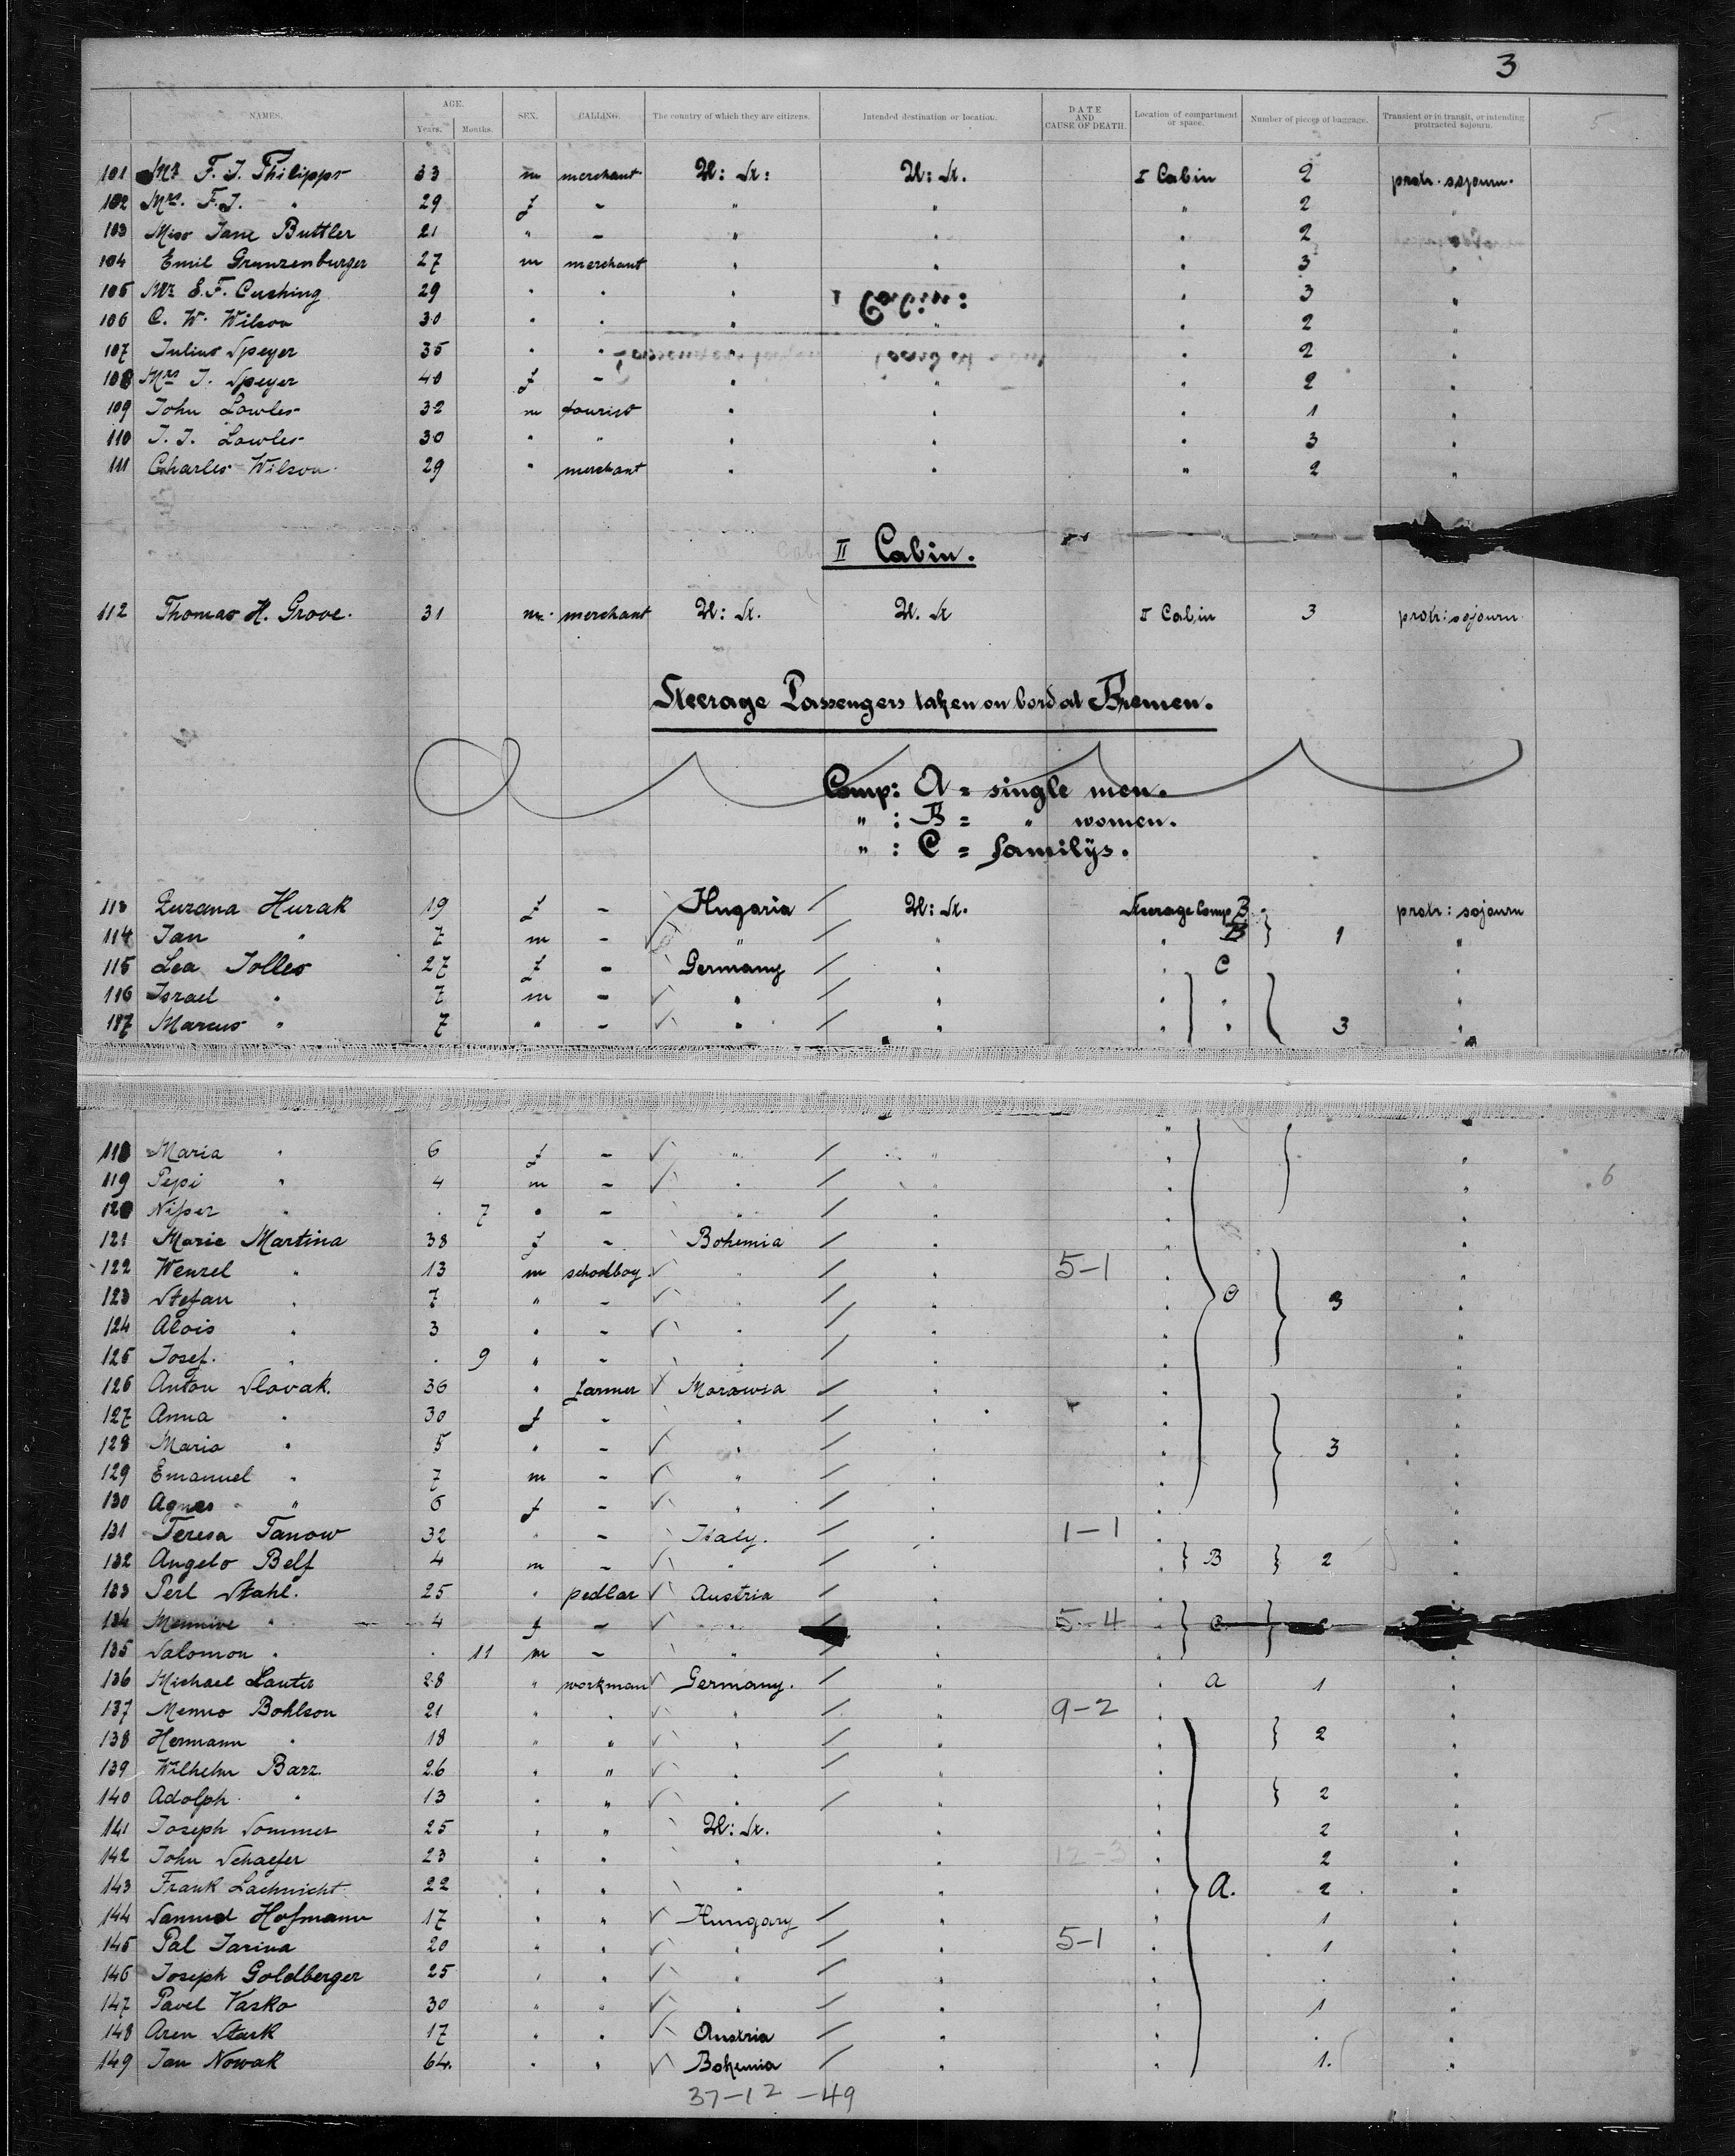 3
NAMES. AGE. Years. Months. SEX. CALLING. The country of which they are citizens. Intended destination or location. DATE AND CAUSE OF DEATH. Location of compartment or space. Number of pieces of baggage. Transient or in transit, or intending protracted sojourn. 5
101 Mr F. J. Philipps 33 m merchant U: St: U: St. I Cabin 2 protr. sojourn.
102 Mrs. F. J. " 29 f - " " " 2 "
103 Miss Jane Buttler 21 " - " " " 2 "
104 Emil Granzenburger 27 m merchant " " " 3 "
105 Mr E. F. Cushing 29 " " " " " 3 "
106 C. W. Wilson 30 " " " " " 2 "
107 Julius Speyer 35 " " " " 2 "
108 Mrs J. Speyer 40 f - " " " 2 "
109 John Lowles 32 m tourist " " " 1 "
110 J. J. Lowles 30 " " " " " 3 "
111 Charles Wilson 29 " merchant " " " 2 "
II Cabin.
112 Thomas H. Grove. 31 m. merchant U: St. U. St I Cabin 3 protr: sojourn
Steerage Passengers taken on bord at Bremen.
Comp: A = single men.
" : B = " women.
" : C = familÿs.
113 Zuzana Hurak 19 f - Hugaria U: St. Steerage Comp B. protr: sojourn
114 Jan " 7 m - " " " B 1 "
115 Lea Jolles 27 f - Germany " " C "
116 Israel " 7 m - " " " " "
117 Marcus " 7 " - " " " " 3 "
118 Maria " 6 f - " " " "
119 Pepi " 4 m - " " " " 6
120 " . 7 " - " " " "
121 Marie Martina 38 f - Bohemia " " "
122 Wenzel " 13 m schoolboy " " 5-1 " "
123 Stefan " 7 " - " " " C 3 "
124 Alois " 3 " - " " " "
125 Josef. " . 9 " - " " " "
126 Anton Slovak. 36 " farmer Morawia " " "
127 Anna " 30 f - " " " "
128 Maria " 5 " - " " " 3 "
129 Emanuel " 7 m - " " " "
130 Agnes " 6 f - " " " "
131 Teresa Tanow 32 " - Italy. " 1-1 " "
132 Angelo Belf 4 m - " " B 2 "
133 Perl Stahl. 25 " pedlar Austria " " "
134 " 4 f - " " 5-4 " C "
135 Salomon " . 11 m - " " " "
136 Michael Lauter 28 " workman Germany. " " A 1 "
137 Menno Bohlson 21 " " " " 9-2 " "
138 Hermann " 18 " " " " " 2 "
139 Wilhelm Barz 26 " " " " " "
140 Adolph " 13 " " " " " 2 "
141 Joseph Sommer 25 " " U: St. " " 2 "
142 John Schaefer 23 " " " " 12-3 " 2 "
143 Frank Lachnicht 22 " " " " " A. 2 "
144 Samuel Hofmann 17 " " Hungary " " 1 "
145 Pal Jarina 20 " " " " 5-1 " 1 "
146 Joseph Goldberger 25 " " " " " . "
147 Pavel Vasko 30 " " " " " 1 "
148 Aren Stark 17 " " Austria " " . "
149 Jan Nowak 64. " " Bohemia " " 1. "
37-12-49